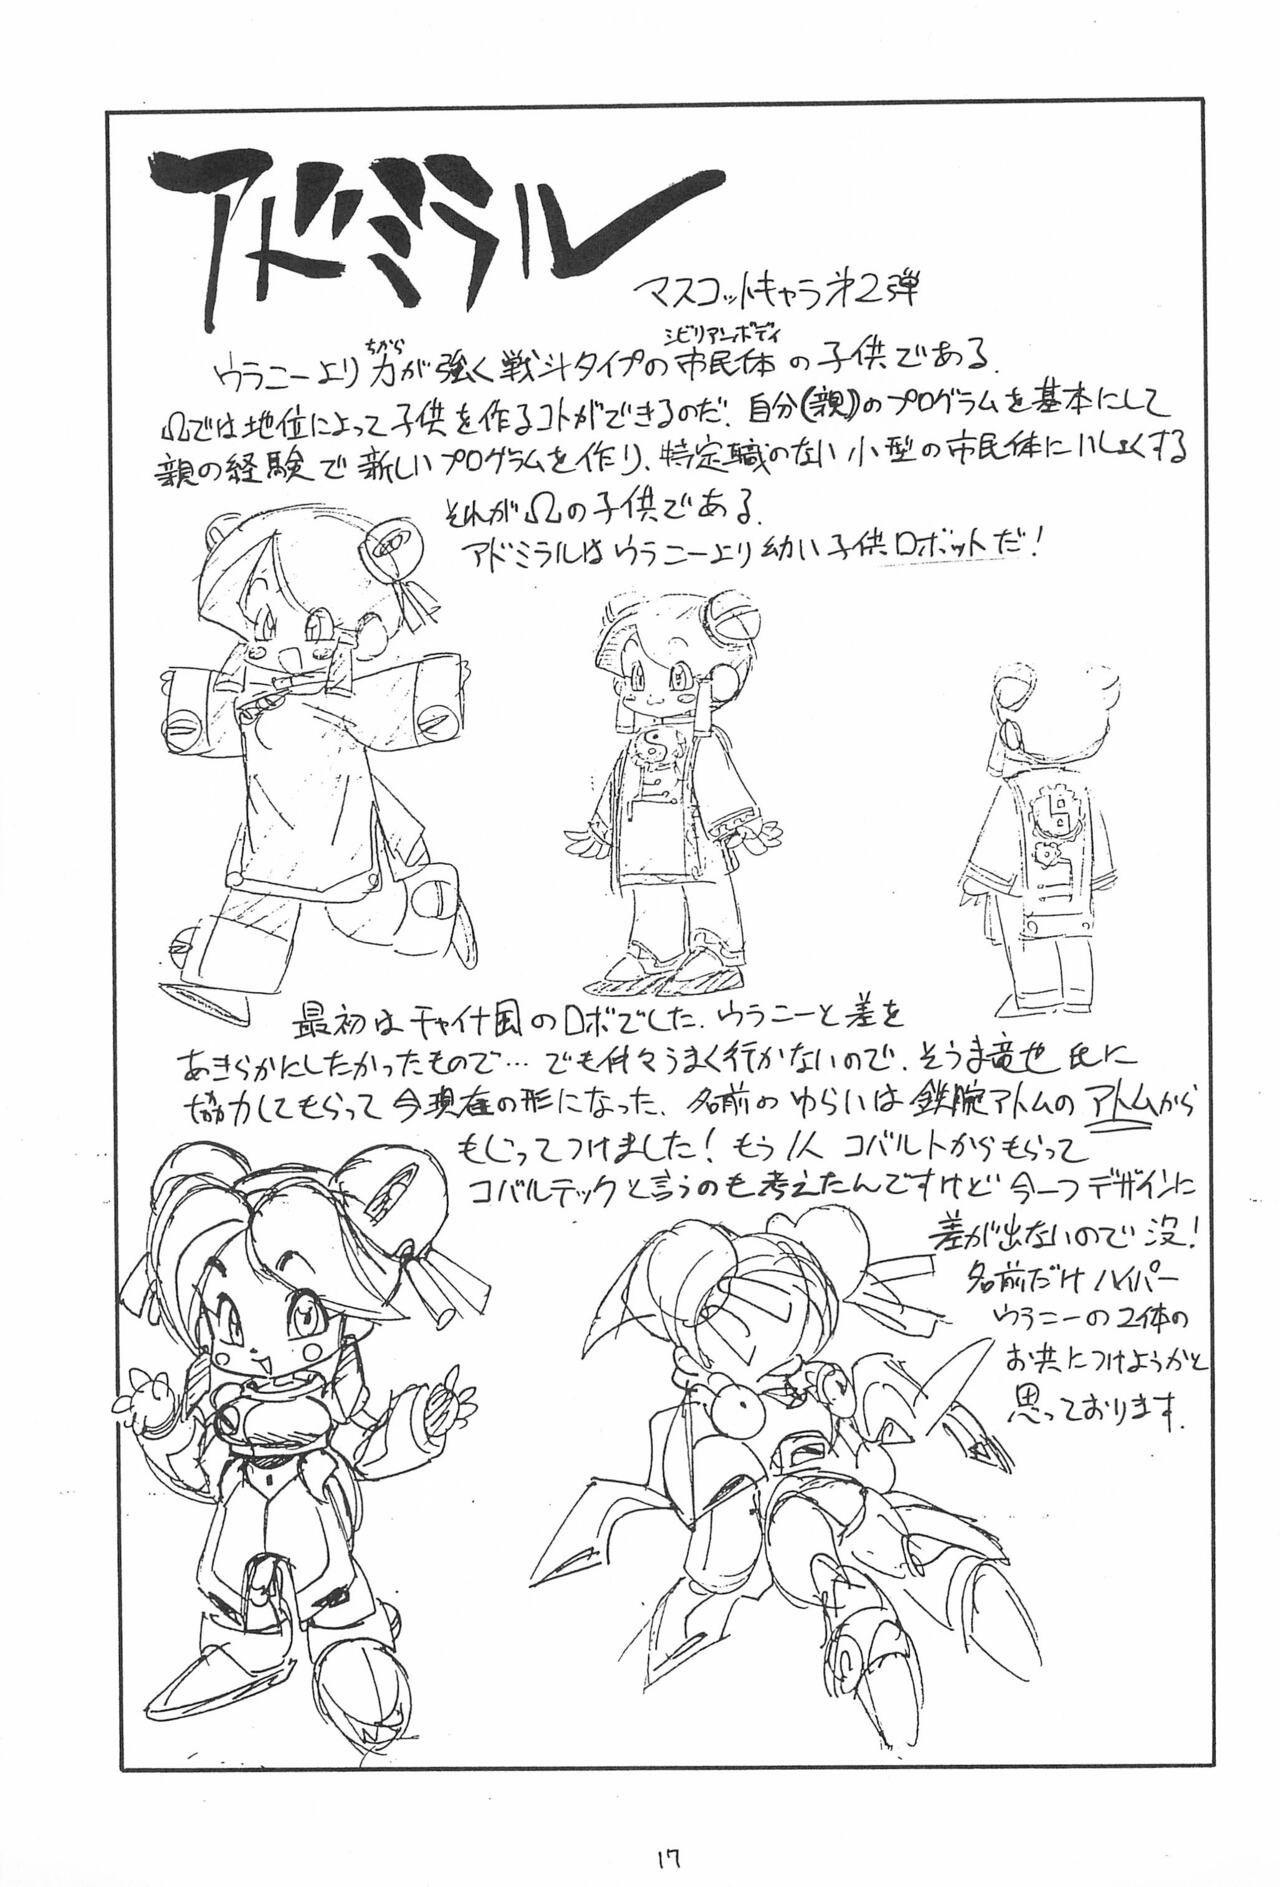 アドミラル
マスコットキャラオ2弾
ちから
シビリアンボディ
ウラニーより力が強く戦斗タイプの市民体の子供である.
Ωでは地位によって子供を作るコトができるのだ. 自分(親)のプログラムを基本にして
親の経験で新しいプログラムを作り、特定職のない小型の市民体にいしょくする
それがΩの子供である.
アドミラルはウラニーより幼い子供ロボットだ!
最初はチャイナ風のロボでした. ウラニーと差を
あきらかにしたかったもので… でも仲々うまく行かないので. そうま竜也 氏に
協力してもらって今現在の形になった. 名前のゆらいは鉄腕アトムのアトムから
もじってつけました! もう1人 コバルトからもらって
コバルテックと言うのも考えたんですけど 今一つデザインに
差が出ないので没!
名前だけハイパー
ウラニーの2体の
お共につけようかと
思っております.
17